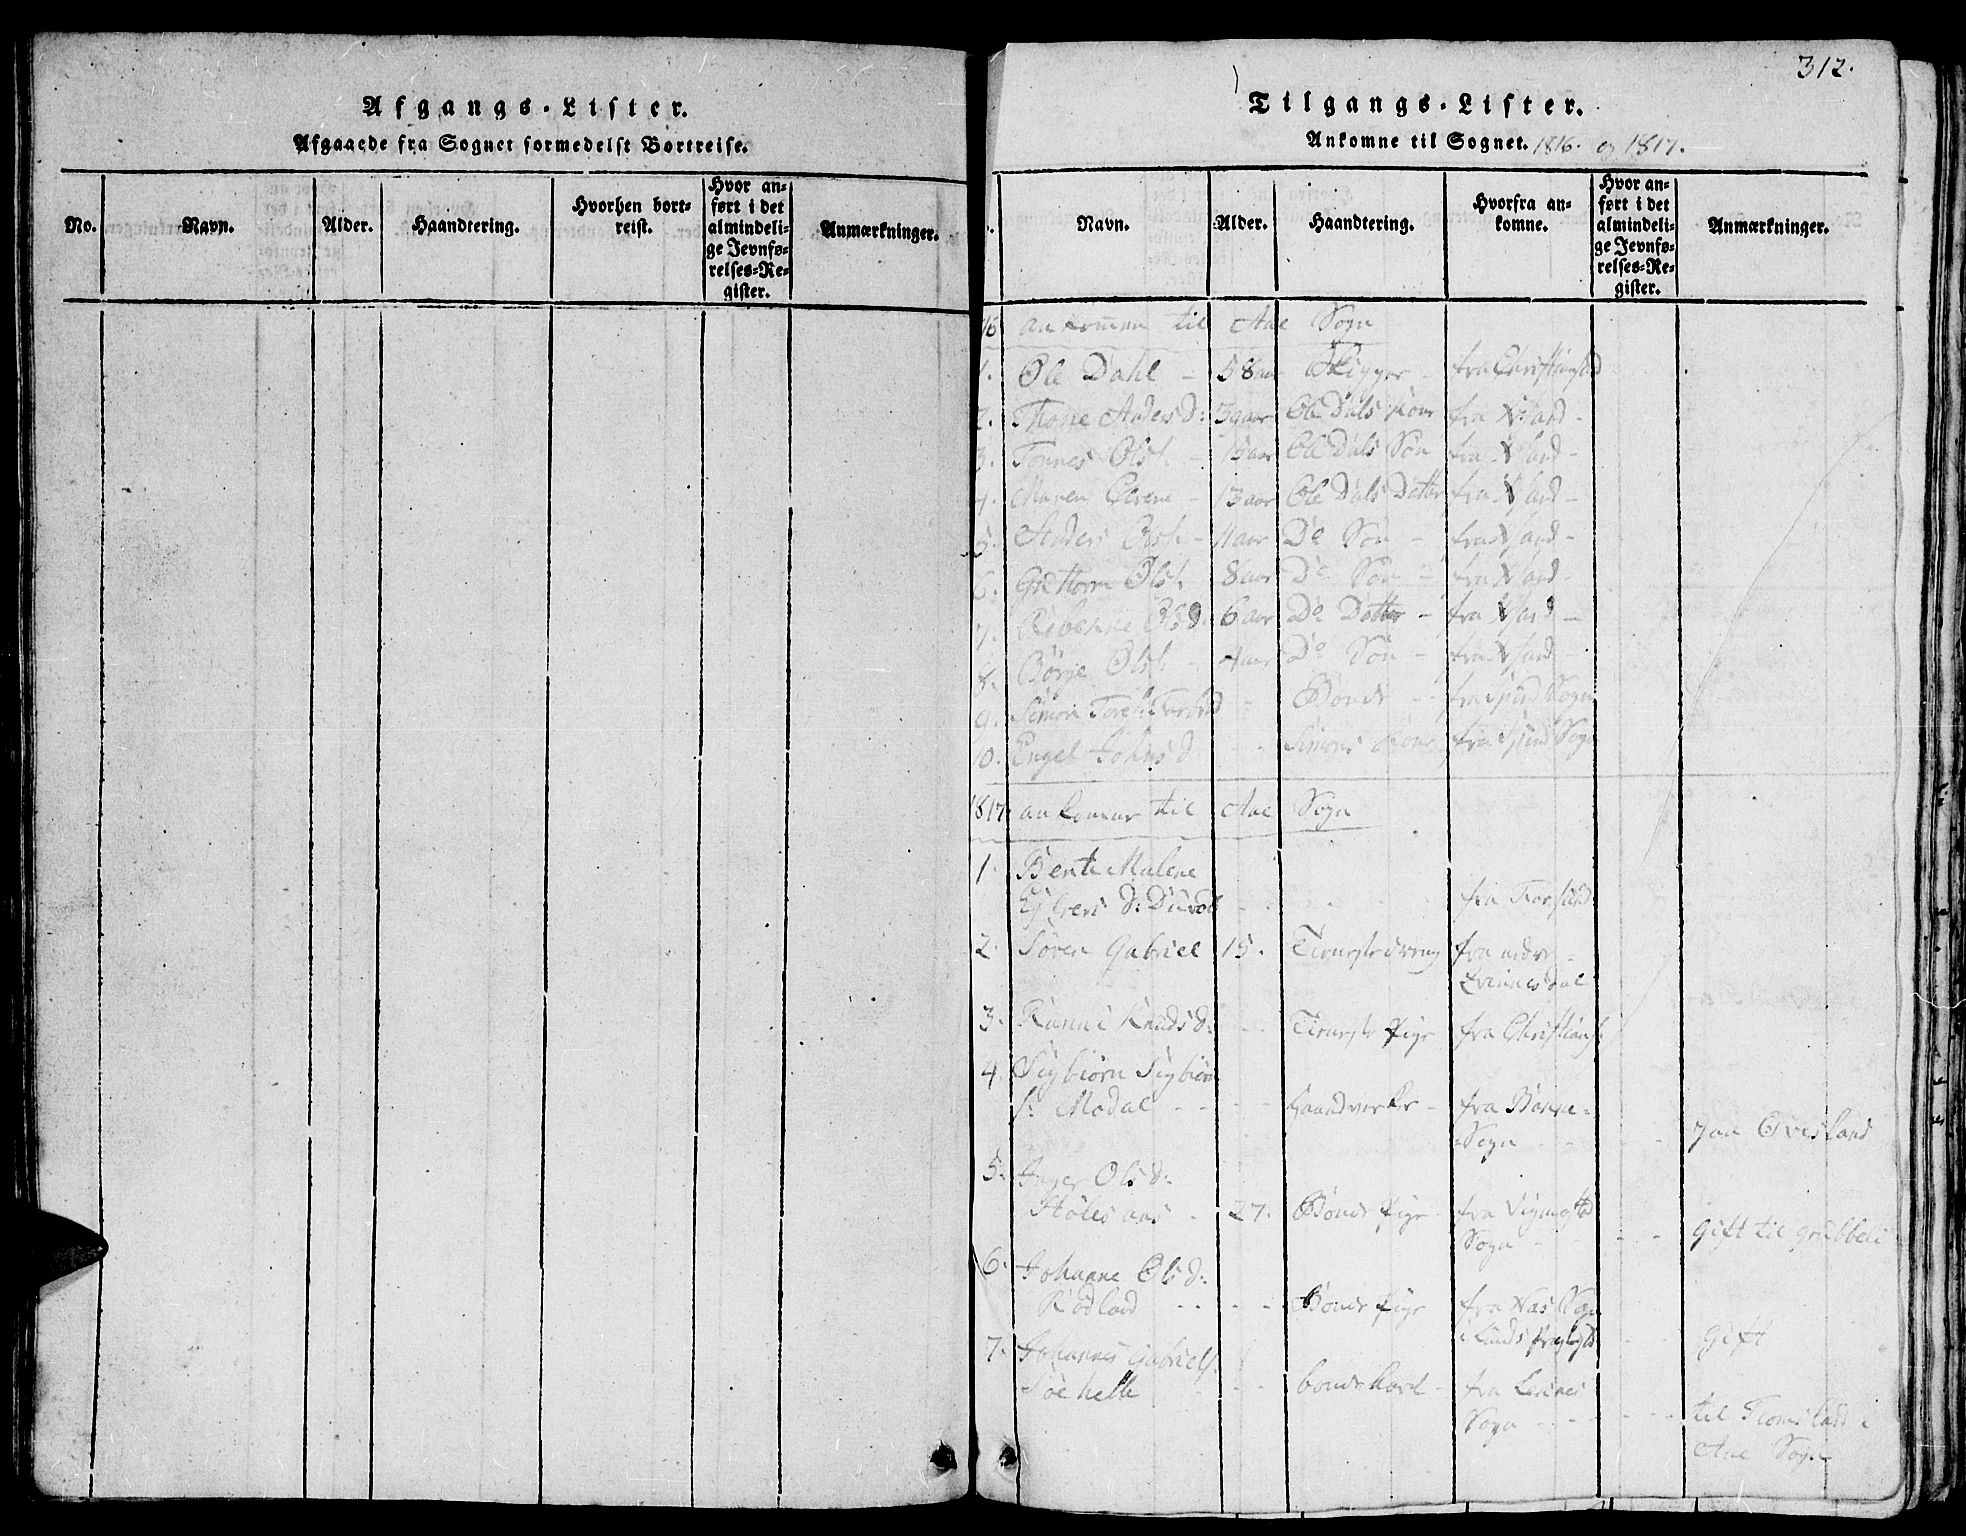 Afgangs-Lister.
Afgaaede fra Sognet formedelst Bortreise.
No. Navn. Alder. Haandtering. Hvorhen bortreist. Hvor anført i det almindelige Jevnførelses-Register. Anmærkninger.
312.
Tilgangs-Lister.
Ankomne til Sognet. 1816. og 1817.
Navn. Alder. Haandtering. Hvorfra ankomne. Hvor anført i det almindelige Jevnførelses-Register. Anmærkninger.
16 ankommen til Aae Sogn
1. Ole Dahl - 58 aar fra Christiansand
2. Thone Anders D: 39 aar Ole Dals Kone fra Xsand -
3. Tønnes Ols. - 15 aar Ole Dals Søn fra Xsand -
4. Maren Elene - 13 aar Ole Dals Datter fra Xsand -
5. Anders Ols. - 11 aar Do Søn - fra Xsand -
6. Guttorm Ols. 8 aar Do Søn - fra Xsand -
7. Rebekke Ols D. 6 aar Do Datter - fra Xsand -
8. Børje Ols. - 4 aar Do Søn - fra Xsand -
9. Simon - Bonde - fra Sogn
10. Engel Johns D - Simons Kone fra Sogn
1817. ankomne til Aae Sogn
1. Bente Malene
D: - - fra
2. Søren Gabriel 15. Tienestedreng fra nedre -
Qvinnesdal
3. Knuds D: - - Tieneste Pige fra Christians.
4. Sigbiørn Sigbiørn
S: Modal - - - - Haandverker - fra
Sogn - - - - Paa Øvesland
5. Inger Ols D:
27. Bonde Pige fra Vigmostad
Sogn - - - - Gift til Grubbeli
6. Johanne Ols D:
Rødland - - - - Bonde Pige fra Næs Sogn
i Lunds Præstegield - Gift
7. Johannes Gabriels.
- - bonde karl - fra
Sogn - - - - til i
Aae Sogn